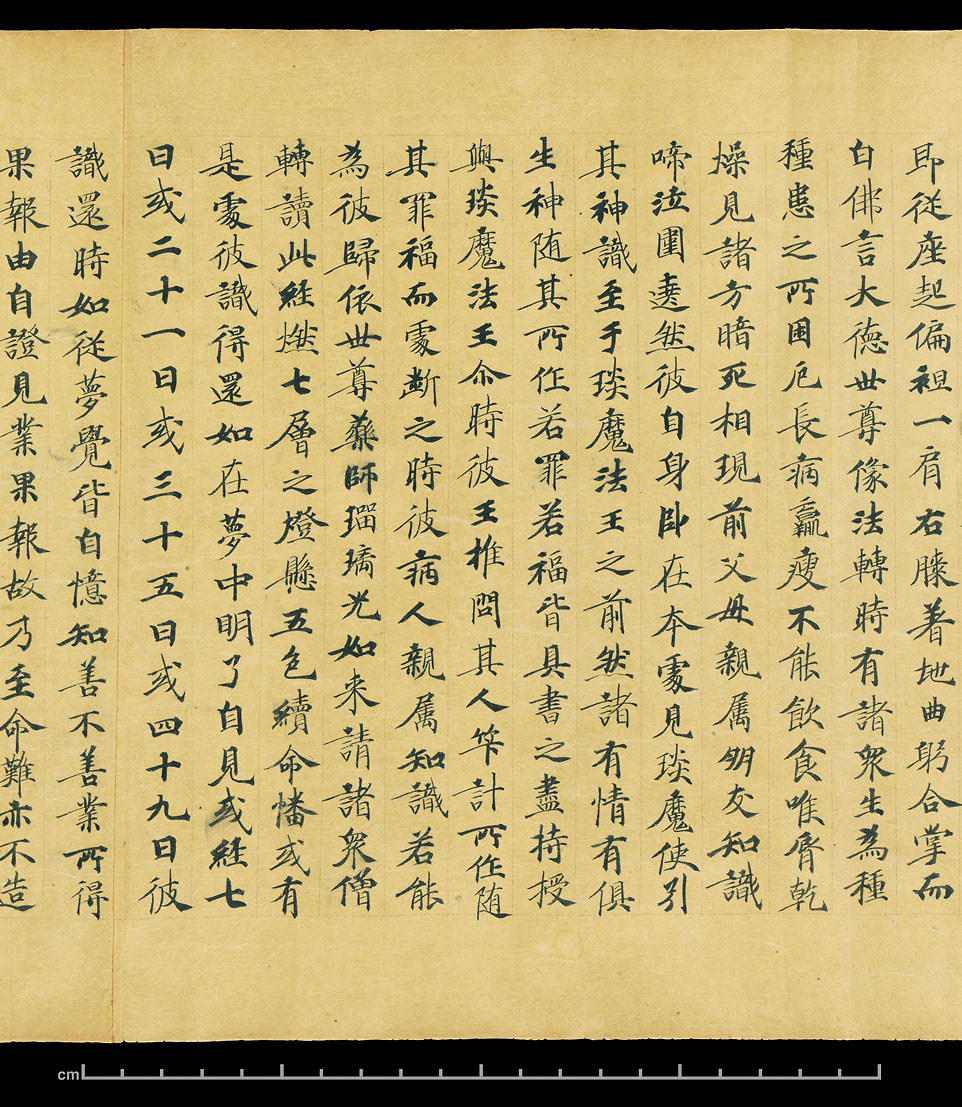 即從座起偏袒一肩右膝著地曲躬合掌而
白佛言大德世尊像法轉時有諸衆生為種
種患之所困厄長病羸瘦不能飲食唯脣乾
燥見諸方暗死相現前父母親属朋友知識
啼泣圍遶然彼自身卧在本處見琰魔使引
其神識至于琰魔法王之前然諸有情有俱
生神随其所作若罪若福皆具書之盡持授
與琰魔法王尒時彼王推問其人筭計所作随
其罪福而處断之時彼病人親属知識若能
為彼歸依世尊藥師瑠璃光如来請諸衆僧
轉讀此經燃七層之燈懸五色續命幡或有
是處彼識得還如在夢中明了自見或經七
日或二十一日或三十五日或四十九日彼
識還時如從夢覺皆自憶知善不善業所得
果報由自證見業果報故乃至命難亦不造
cm